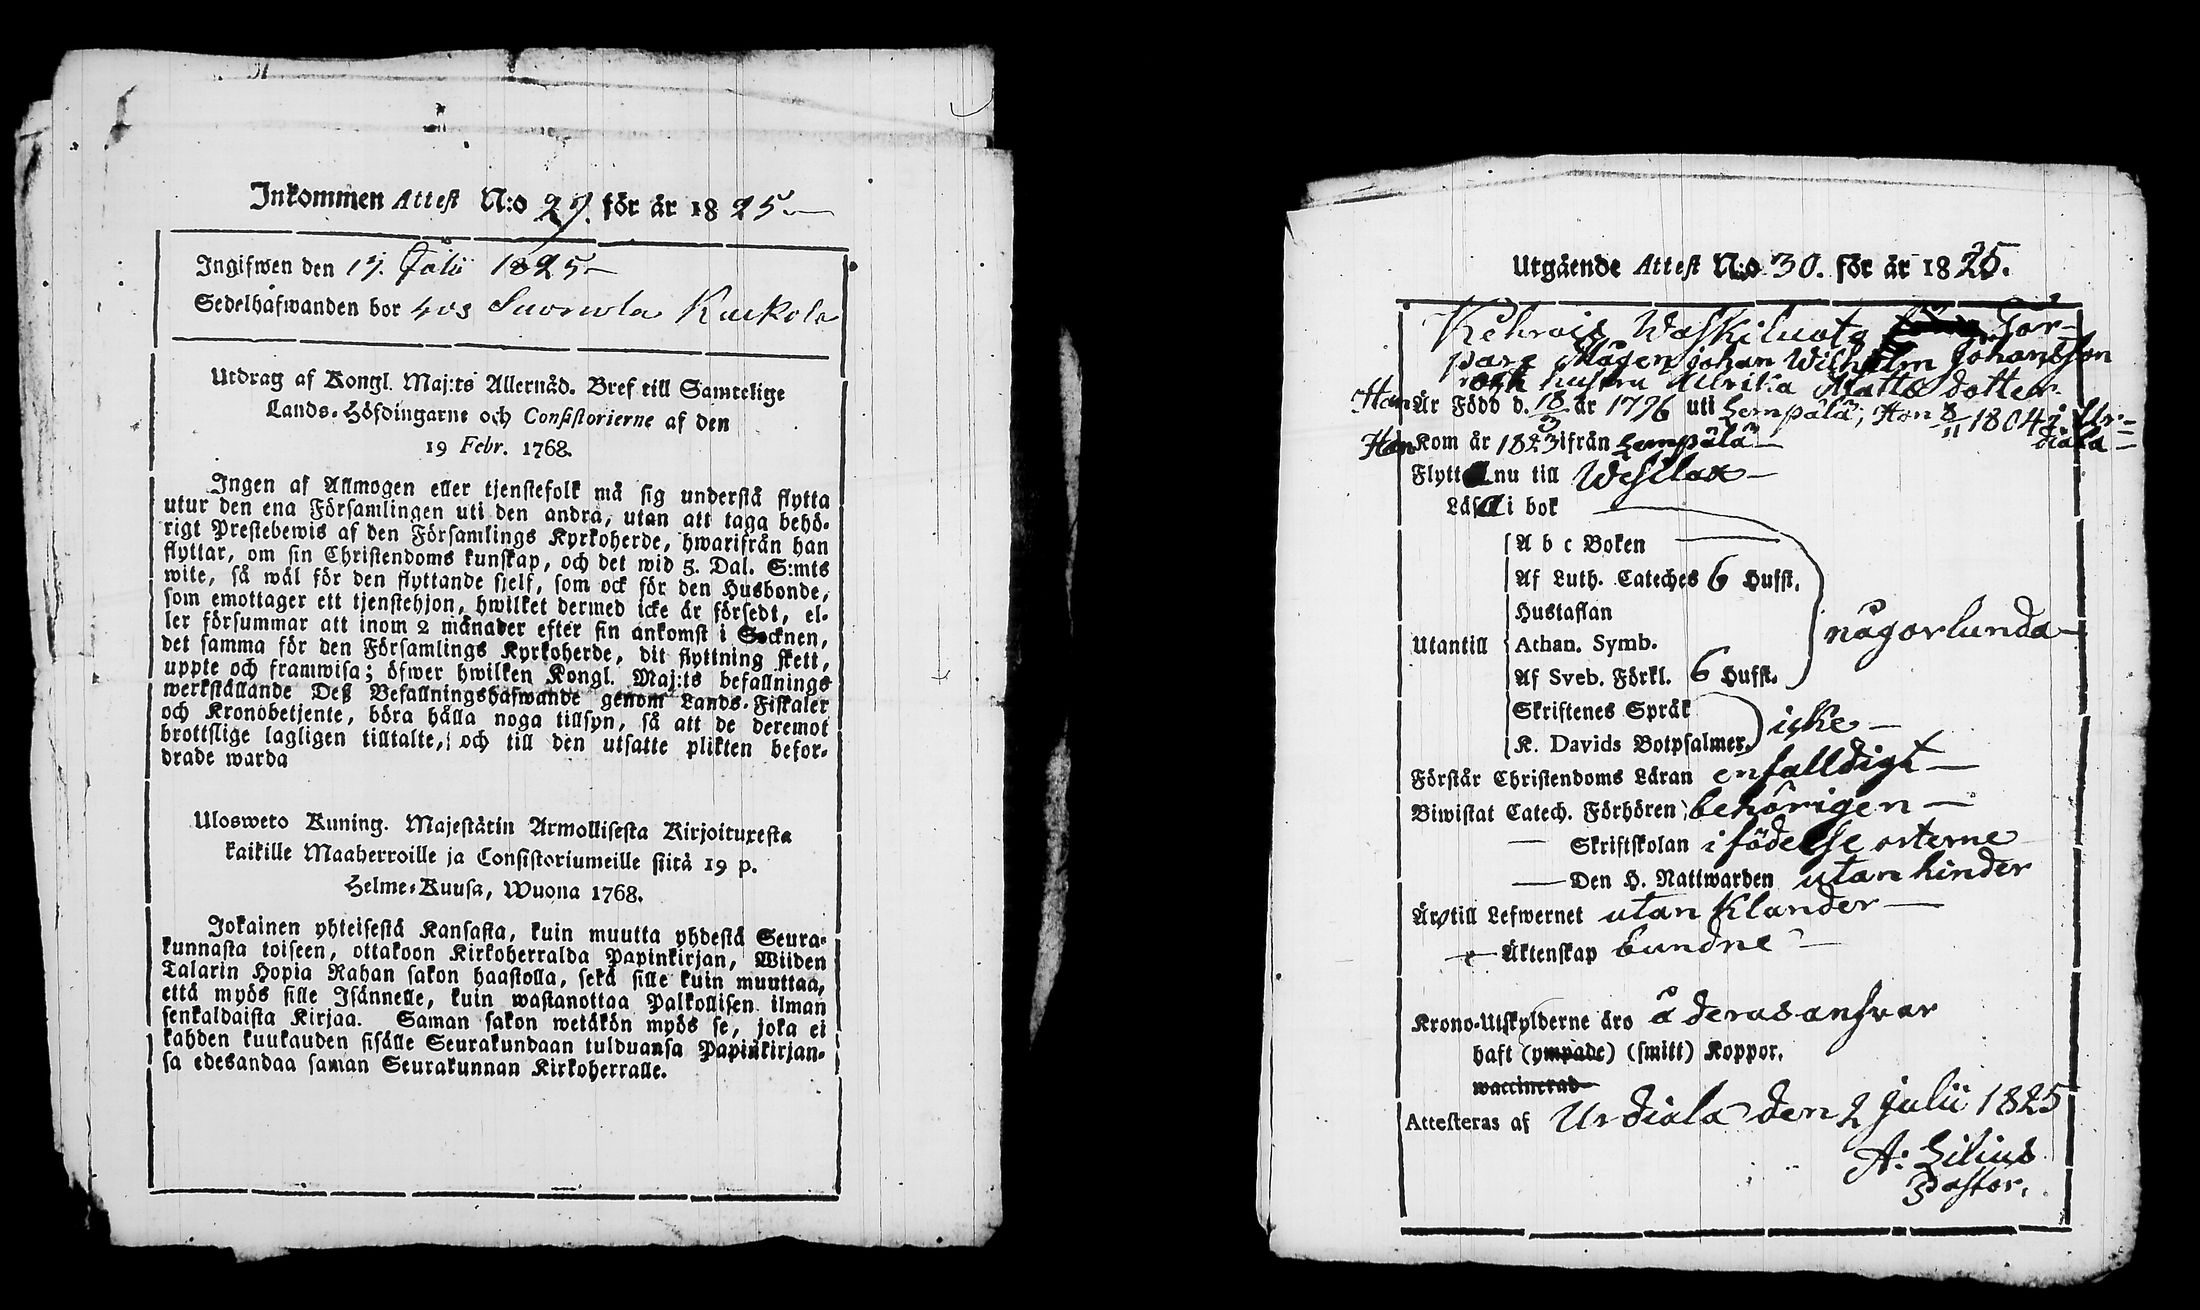 Inkommen Attest N:o 27. för år 1825.
Ingifwen den 17. Julii 1825
Sedelhafwanden bor hos Kuckola
Utdrag af Kongl. Maj:ts Allernåd. Bref till Samtelige
Lands-Höfdingarne och Consistorierne af den
19 Febr. 1768.
Ingen af Allmogen eller tjenstefolk må sig understå flytta
utur den ena Församlingen uti den andra, utan att taga behö-
rigt Prestebewis af den Församlings Kyrkoherde, hwarifrån han
flyttar, om sin Christendoms kunskap, och det wid 5. Dal. S:mts
wite, så wäl för den flyttande sjelf, som ock för den Husbonde,
som emottager ett tjenstehjon, hwilket dermed icke är försedt, el-
ler försummar att inom 2 månader efter sin ankomst i Socknen,
det samma för den Församlings Kyrkoherde, dit flyttning skett,
uppte och framwisa; öfwer hwilken Kongl. Maj:ts befallnings
werkställande Deß Befallningshafwande genom Lands-Fiskaler
och Kronobetjente, böra hålla noga tillsyn, så att de deremot
brottslige lagligen tilltalte, och till den utsatte plikten befor-
drade warda
Ulosweto Kuning. Majestätin Armollisesta Kirjoituxesta
kaikille Maaherroille ja Consistoriumeille siitä 19 p.
Helme-Kuusa, Wuona 1768.
Jokainen yhteisestä Kansasta, kuin muutta yhdestä Seura-
kunnasta toiseen, ottakoon Kirkoherralda Papinkirjan, Wiiden
Talarin Hopia Rahan sakon haastolla, sekä sille kuin muuttaa,
että myös sille Isännelle, kuin wastanottaa Palkollisen ilman
senkaldaista Kirjaa. Saman sakon wetäkön myös se, joka ei
kahden kuukauden sisälle Seurakundaan tulduansa Papinkirjan-
sa edesandaa saman Seurakunnan Kirkoherralle.
Utgående Attest N:o 30. för år 1825.
Kehrois Waskiluoto Tor-
pare Mågen Johan Wilhelm Johansson
och hustru Ulrika Matts dotter
Han Är Född d. 18/3 år 1796 uti Lempälä, Hon 8/11 1804 i Ur-
diala
Han Kom år 1823 ifrån Lempälä
Flytta nu till Weslax
Läsa i bok
A b c Boken
Af Luth. Cateches 6 Hufst.
Hustaflan
Utantill Athan. Symb. någorlunda
Af Sveb. Förkl. 6 Hufst.
Skriftenes Språk
K. Davids Botpsalmer. icke
Förstår Christendoms Läran enfalldigt
Biwistat Catech. Förhören behörigen
Skriftskolan i födelse orterne
Den H. Nattwarden utan hinder
Äro till Lefwernet utan Klander
Äktenskap bundne
Krono-Utskylderne äro å deras answar
haft (ympade) (smitt) Koppor.
waccinerad
Attesteras af Urdiala den 2 Julii 1825
A: Lilius
Pastor.